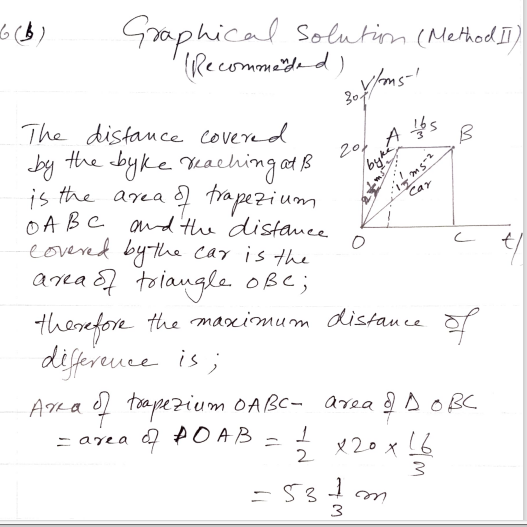 6(b) Graphical Solution (Method II)
(Recommended)
V/ms⁻¹
30
20
A 16/3 s B
byke 2 1/2 ms⁻²
1 1/2 ms⁻²
car
O C t/
The distance covered
by the byke reaching at B
is the area of trapezium
OABC and the distance
covered by the car is the
area of triangle OBC;
therefore the maximum distance of
difference is ;
Area of trapezium OABC - area of Δ OBC
= area of ΔOAB = 1/2 × 20 × 16/3
= 53 1/3 m